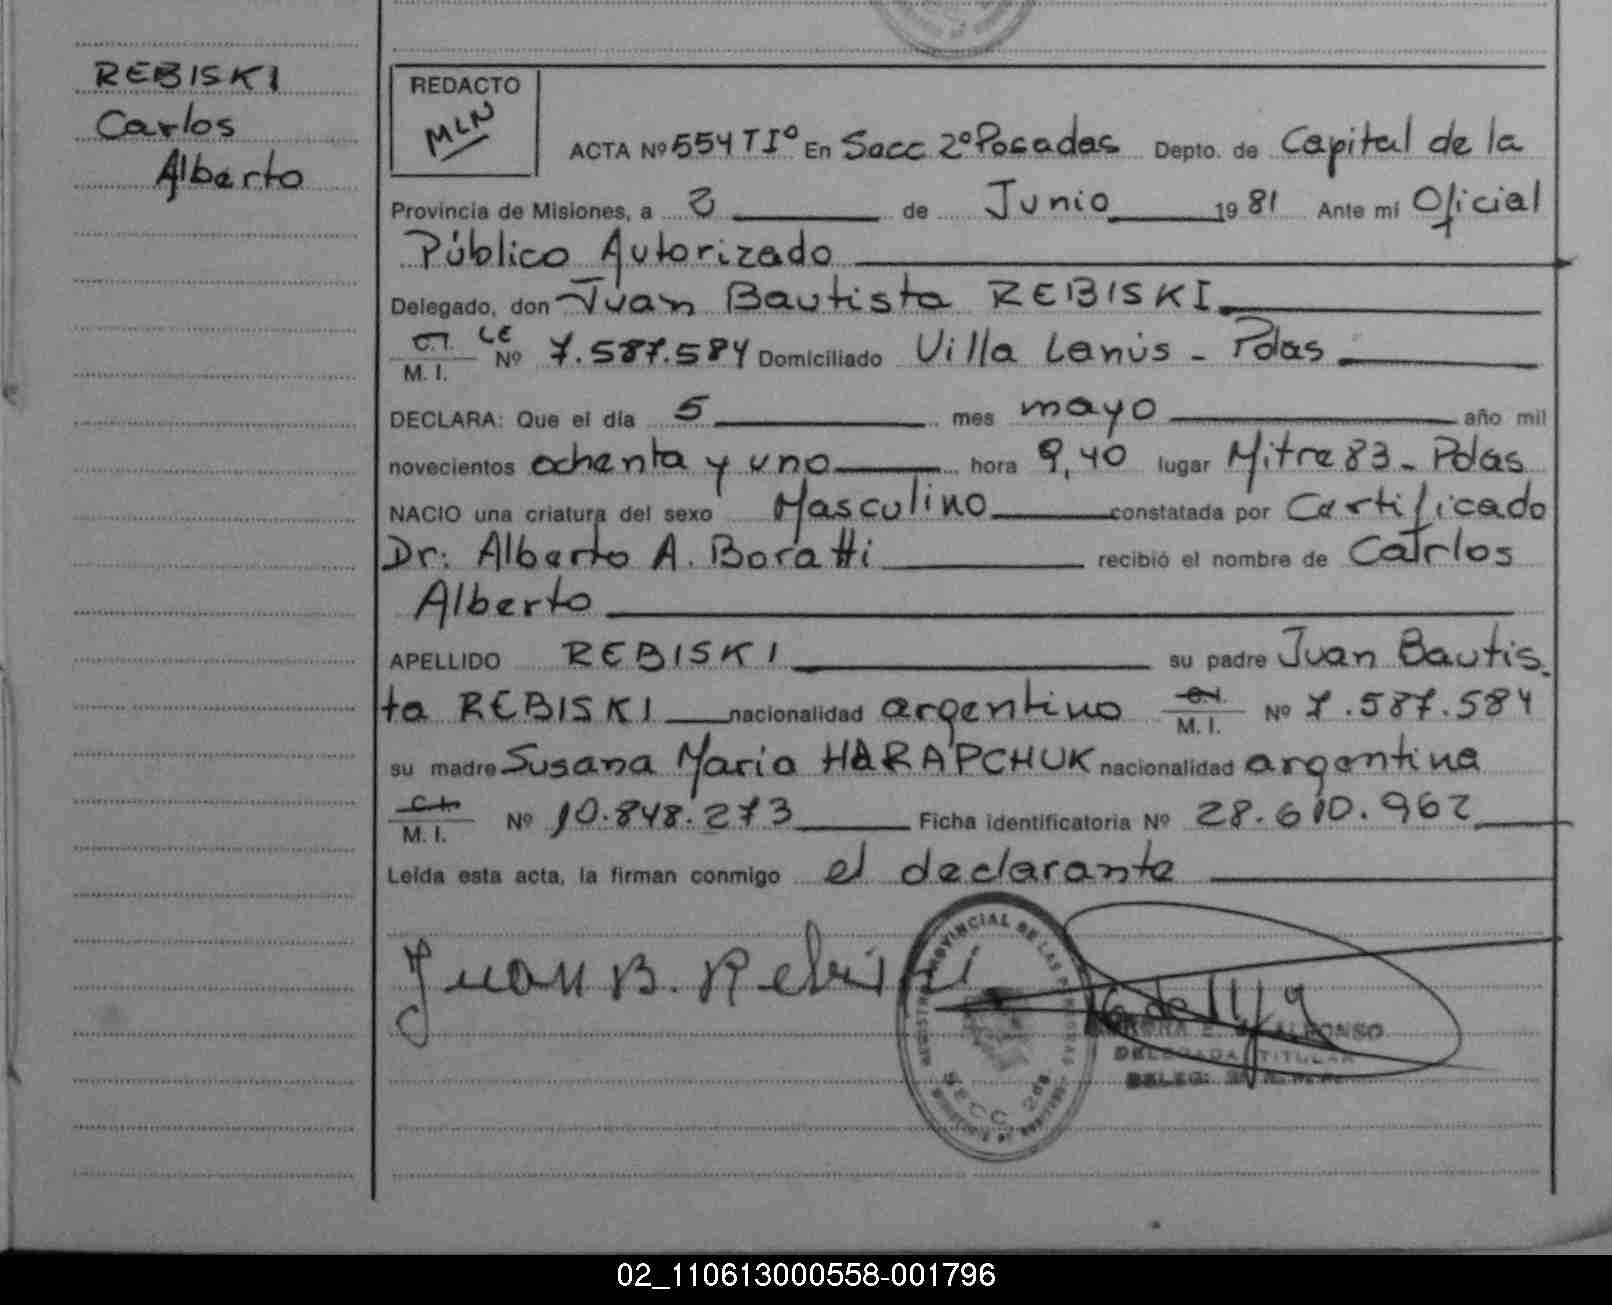 REBISKI
Carlos
Alberto
REDACTO
MLN
ACTA Nº 554 TIº En Secc 2º Posadas Depto. de Capital de la
Provincia de Misiones, a 2 de Junio 1981 Ante mi Oficial
Público Autorizado
Delegado, don Juan Bautista REBISKI
C.I. LE
M. I. Nº 7.587.584 Domiciliado Villa Lanús - Pdas
DECLARA: Que el día 5 mes mayo año mil
novecientos ochenta y uno hora 9,40 lugar Mitre 83 - Pdas
NACIO una criatura del sexo Masculino constatada por Certificado
Dr: Alberto A. Boratti recibió el nombre de Carlos
Alberto
APELLIDO REBISKI su padre Juan Bautis-
ta REBISKI nacionalidad argentino C.I. M. I. Nº 7.587.584
su madre Susana Maria HARAPCHUK nacionalidad argentina
C.I. M. I. Nº 10.848.273 Ficha identificatoria Nº 28.610.962
Leída esta acta, la firman conmigo el declarante
Juan B. Rebiski
REGISTRO PROVINCIAL DE LAS PERSONAS
SECC 2da
E. ALFONSO
DELEGADA TITULAR
DELEG.
02_110613000558-001796